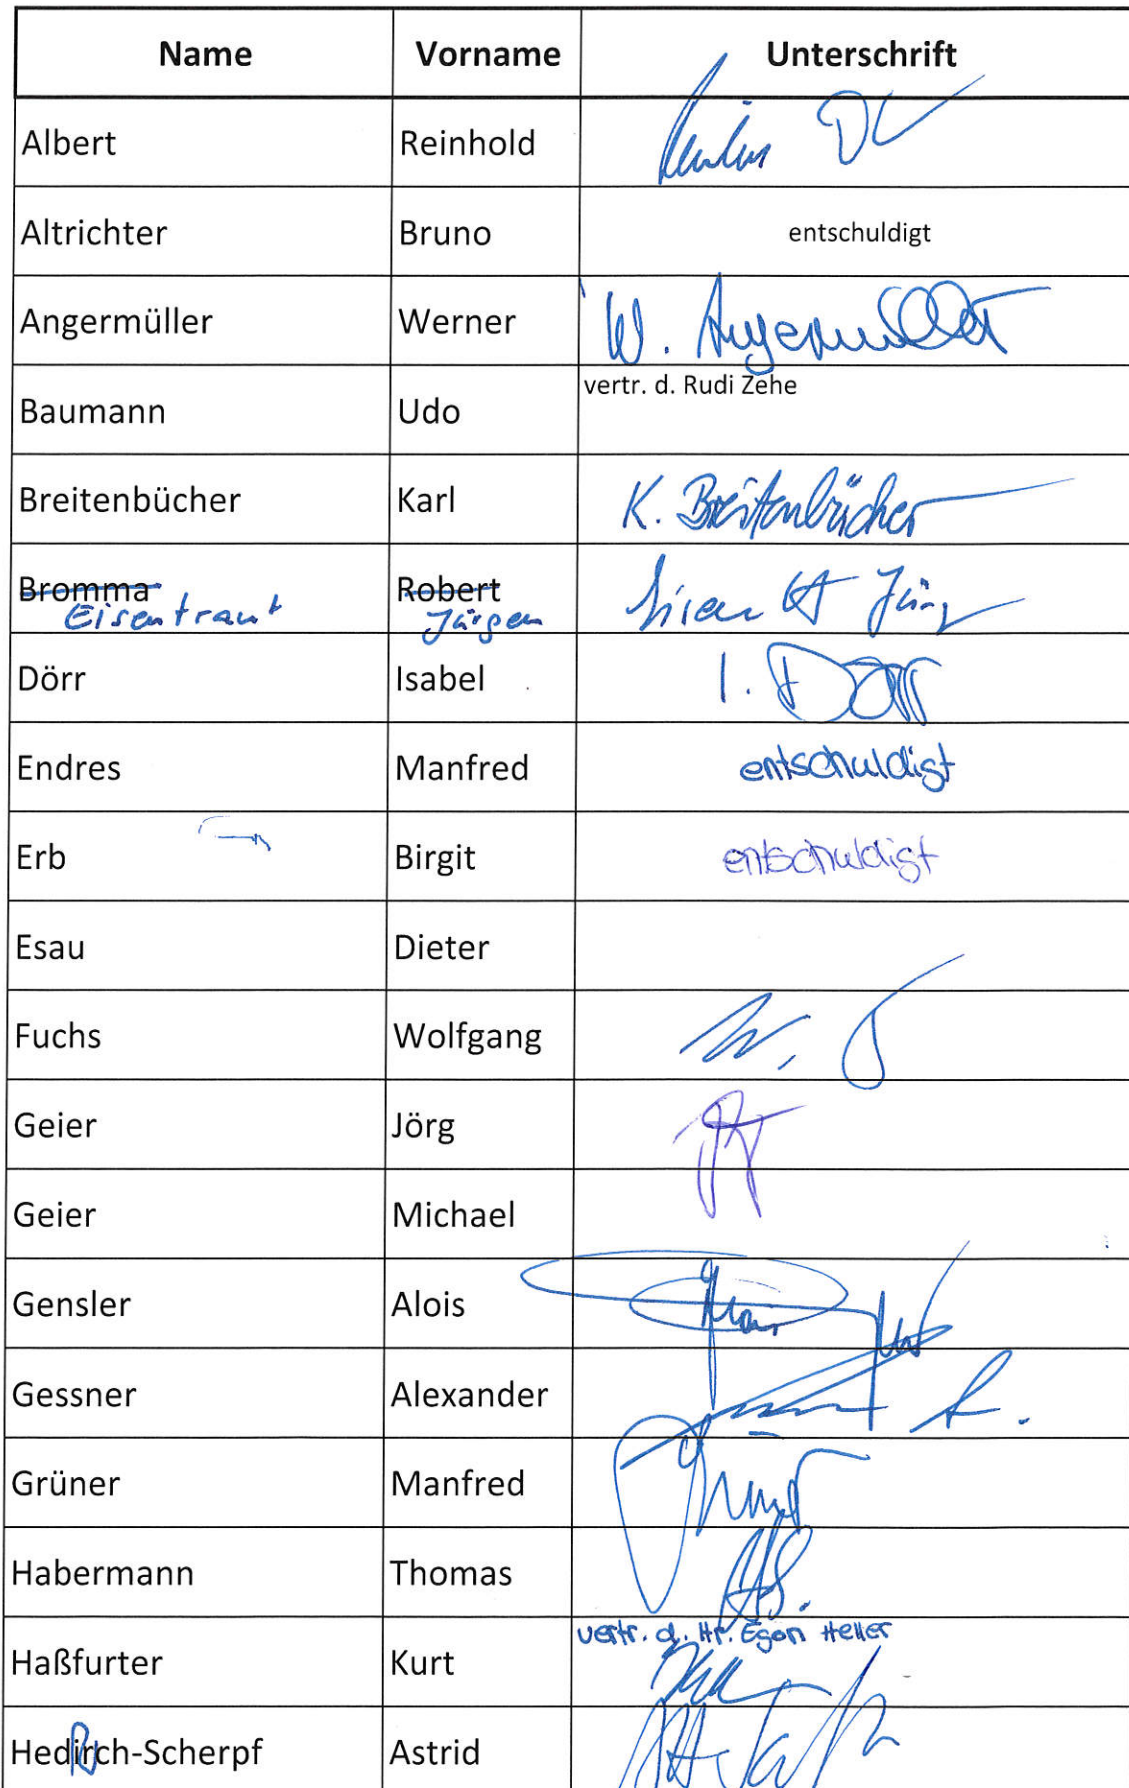 Name Vorname Unterschrift
Albert Reinhold
Altrichter Bruno entschuldigt
Angermüller Werner W. Angermüller
Baumann Udo vertr. d. Rudi Zehe
Breitenbücher Karl K. Breitenbücher
Bromma Robert
Eisentraut Jürgen
Dörr Isabel I. Dörr
Endres Manfred entschuldigt
Erb Birgit entschuldigt
Esau Dieter
Fuchs Wolfgang W.
Geier Jörg
Geier Michael
Gensler Alois
Gessner Alexander
Grüner Manfred Grüner
Habermann Thomas
vertr. d. Hr. Egon Heller
Haßfurter Kurt
Hedrich-Scherpf Astrid